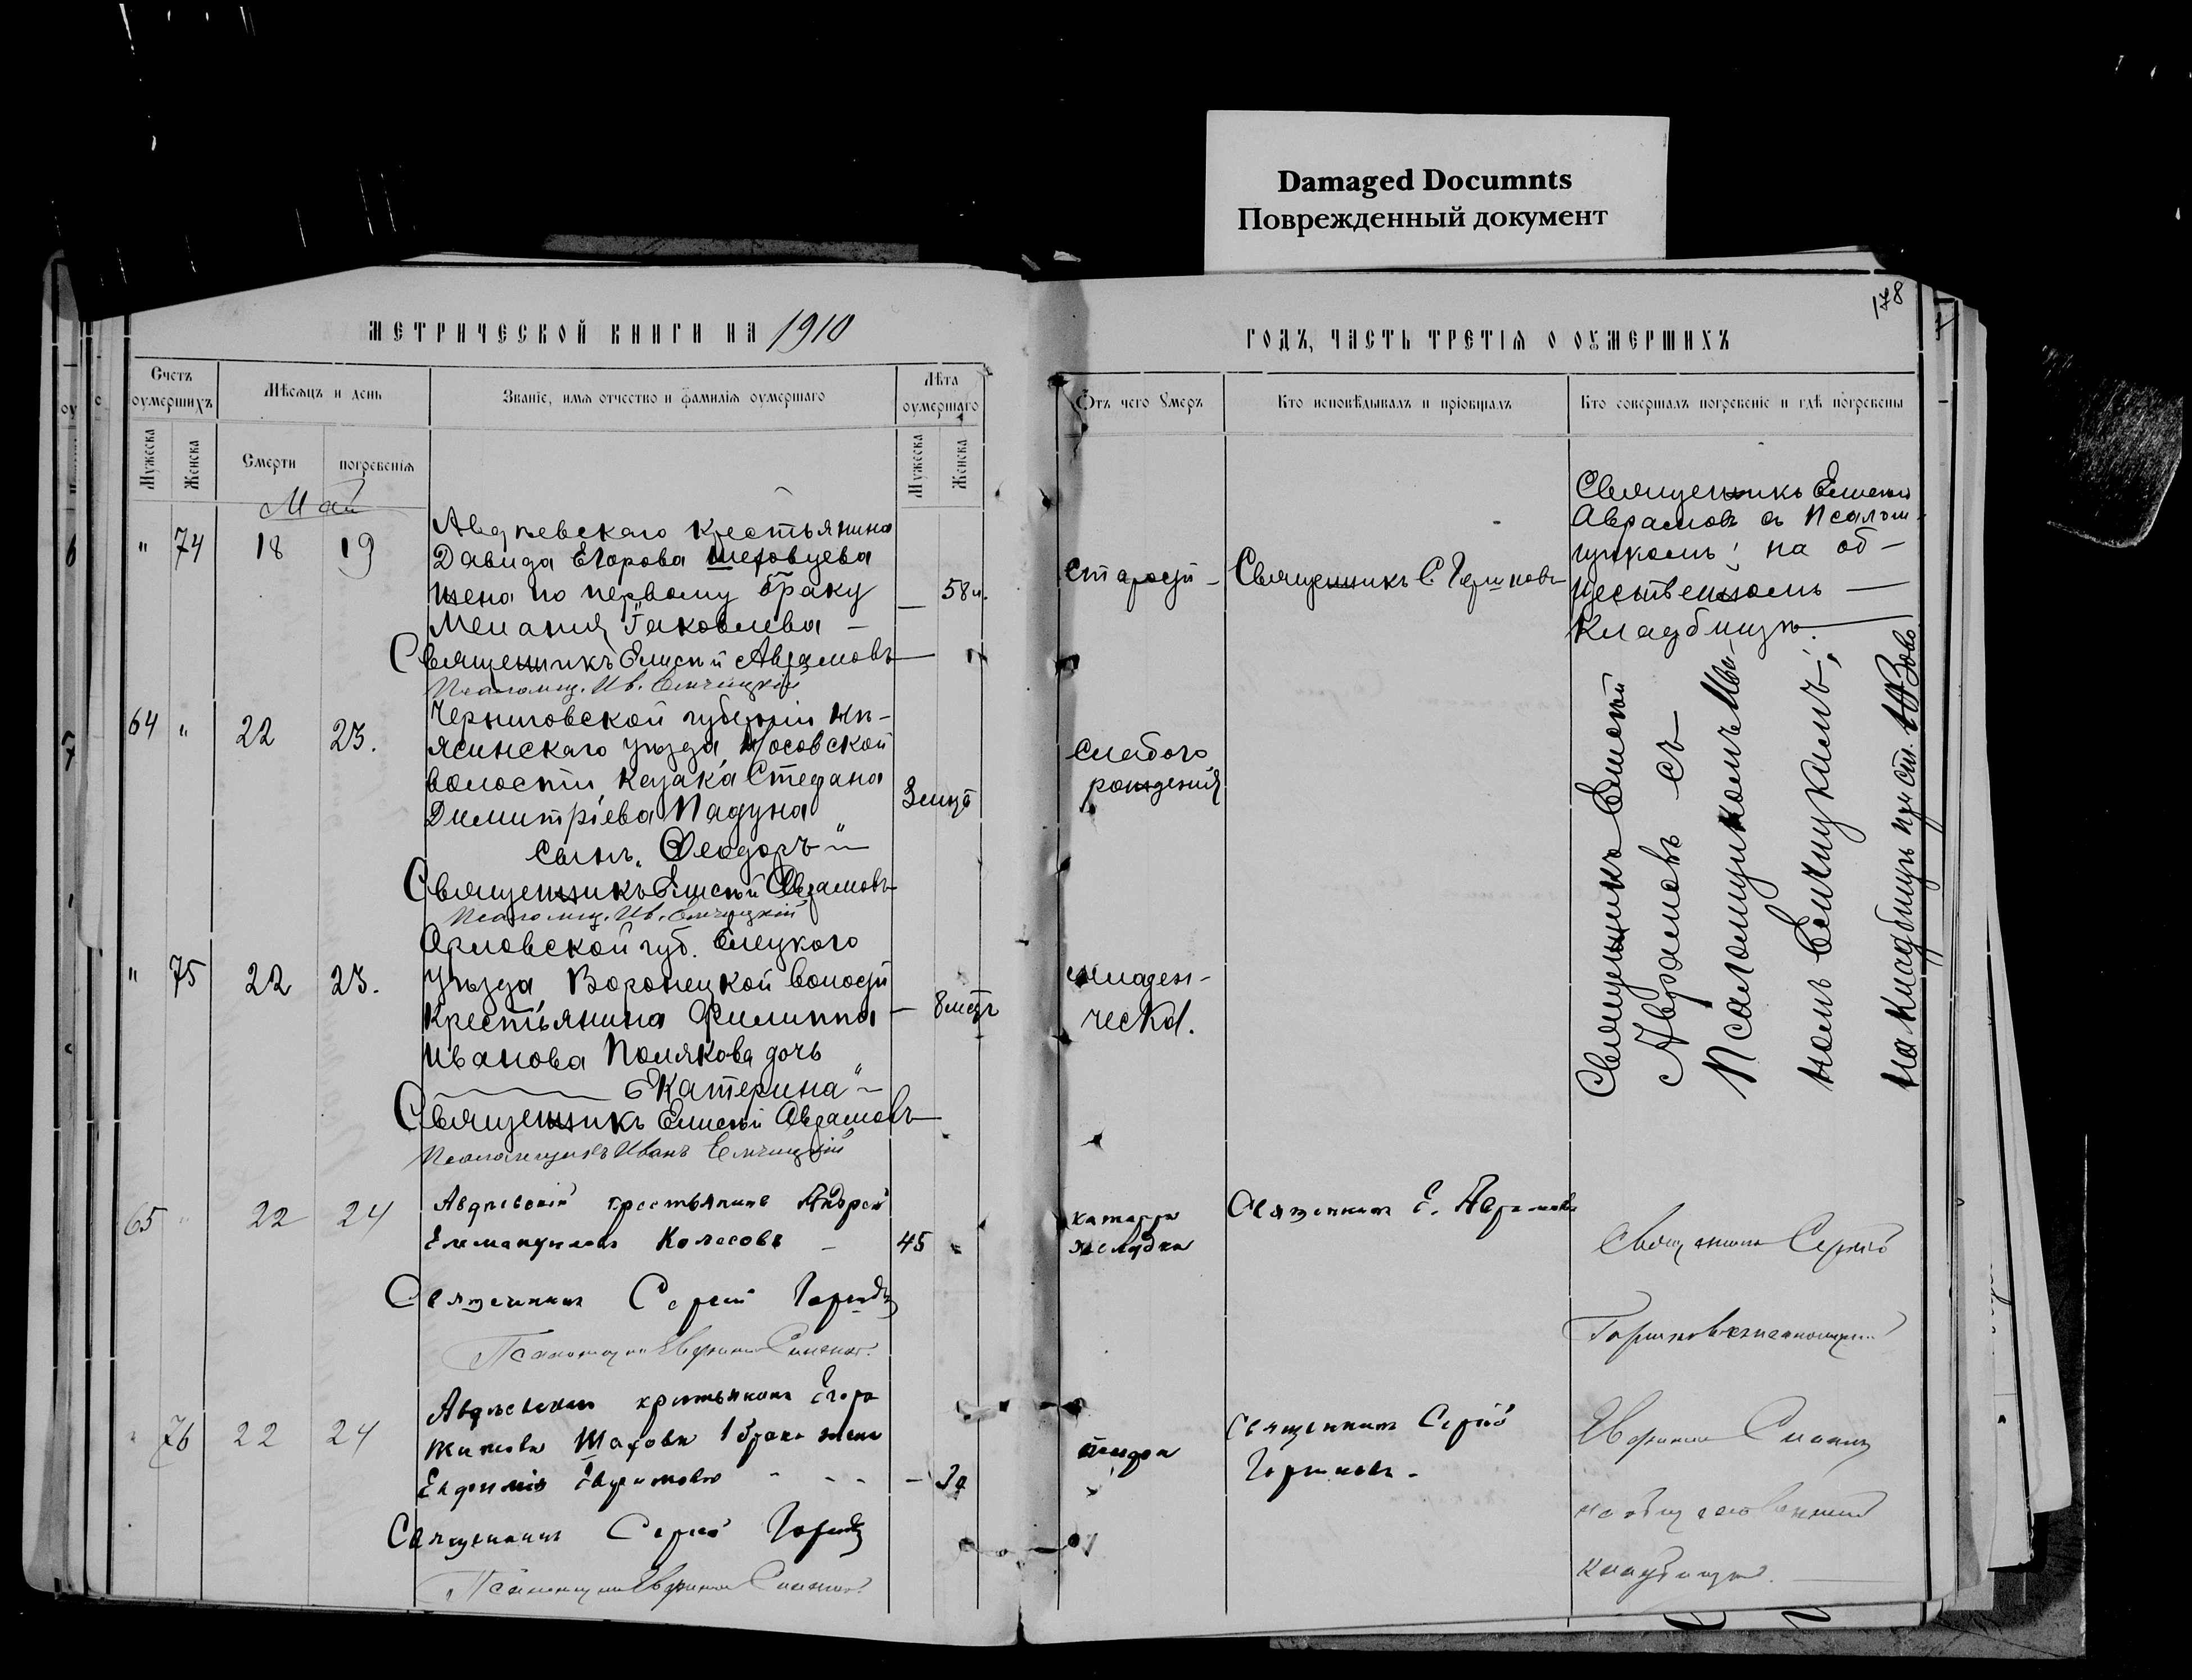 Damaged Documnts
Поврежденный документ
178
МЕТРИЧЕСКОЙ КНИГИ НА 1910
ГОДЪ, ЧАСТЬ ТРЕТІЯ О ОУМЕРШИХЪ
Счетъ оумершихъ
Мѣсяцъ и день
Званіе, имя отчество и фамилія оумершаго
Лѣта оумершаго
Отъ чего умеръ
Кто исповѣдывалъ и пріобщалъ
Кто совершалъ погребеніе и гдѣ погребены
Мужеска
Женска
Смерти
погребенія
Мужеска
Женска
Май
" 74 18 19
Авдѣевскаго крестьянина
Давида Егорова Шеховцева
жена по первому браку
Меланія Іаковлева —
— 58 л.
Священникъ Елисей Авраамовъ
Псаломщ. Ив. Елчицкій
старости
Священникъ С. Горяиновъ
Священникъ Елисей
Авраамовъ съ Псалом-
щикомъ; на об-
щественномъ —
Кладбищѣ.
64 " 22 23.
Черниговской губерніи Нѣ-
жинскаго уѣзда, Носовской
волости, казака Стефана
Димитріева Падуна
сынъ „Ѳеодоръ"
3 мцв
Священникъ Елисей Авраамовъ
Псаломщ. Ив. Елчицкій
слабого
рожденія
Священникъ Елисей
Авраамовъ съ
Псаломщикомъ Ива-
номъ Елчицкимъ;
на кладбищѣ при ст.
" 75 22 23.
Орловской губ. Елецкого
уѣзда Воронецкой волости
Крестьянина Филиппа
Иванова Полякова дочь
Екатерина"
— 8 мцв
Священникъ Елисей Авраамовъ
Псаломщикъ Иванъ Елчицкій
младен-
ческ.
65 " 22 24
Авдѣевскій крестьянинъ Андрей
Колесовъ —
45 "
Священникъ Сергій
Псаломщикъ
катарръ
желудка
Священникъ Е. Авраамовъ
Священникъ Сергій
" 76 22 24
Авдѣевскаго крестьянина Егора
Шахова 1 брака жена
Евфимія
Священникъ Сергій
Псаломщикъ
Священникъ Сергій
Горяиновъ.
на общественномъ
кладбищѣ.